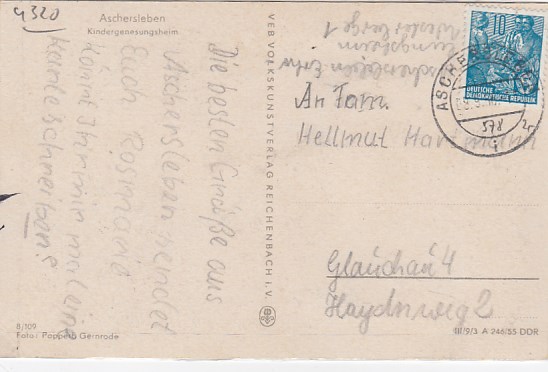 4320
Aschersleben
Kindergenesungsheim
Die besten Grüße aus
Aschersleben sendet
Euch Rosmarie
Könnt Ihr mir mal eine
Karte schreiben?
8/109
Foto: Popperö Gernrode
VEB VOLKSKUNSTVERLAG REICHENBACH I. V.
Aschersleben
Westerberge 1
An Fam.
Hellmut Hartmann
Glauchau 4
Haydnweg 2
10
DEUTSCHE
DEMOKRATISCHE REPUBLIK
ASCHERSLEBEN
III/9/3 A 246/55 DDR